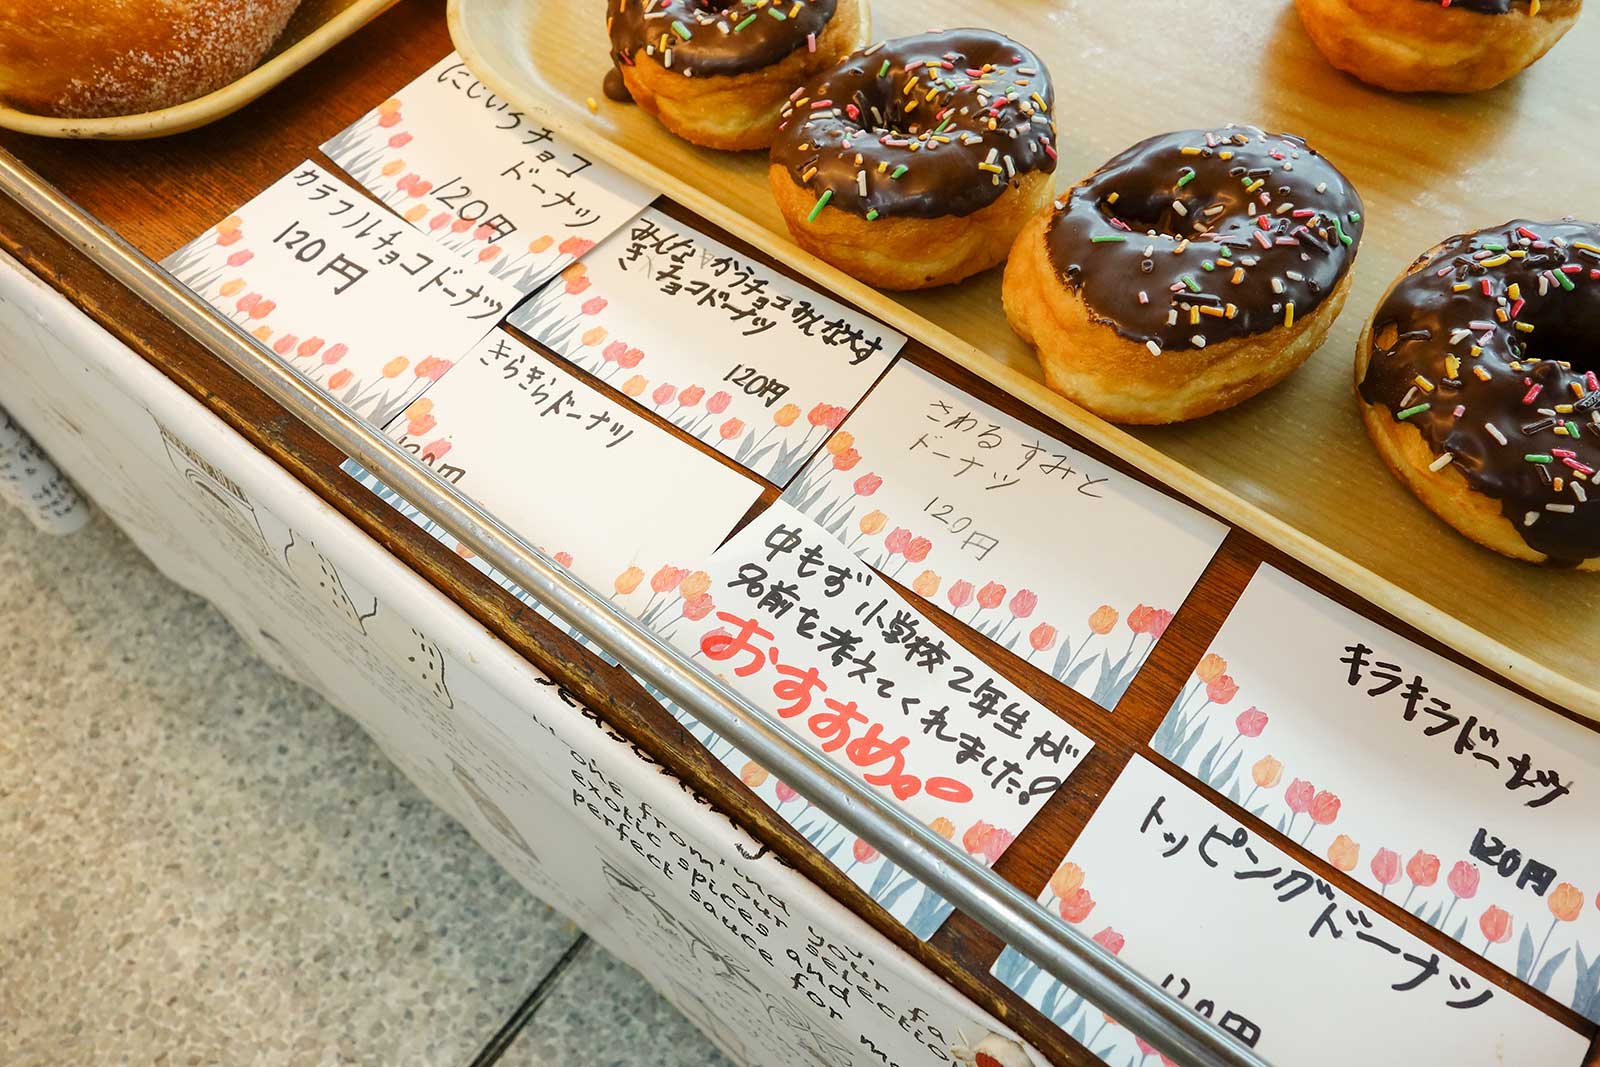 にじいろチョコ
ドーナッツ
120円
カラフルチョコドーナッツ
120円
みんな
き
チョコドーナツ
120円
きらきらドーナツ
120円
さわる すみと
ドーナツ
120円
中もず小学校2年生が
名前を考えてくれました!
おすすめ。
キラキラドーナツ
120円
トッピングドーナツ
120円
one from
exotic spices
perfect sauce
your
our selection
and
for